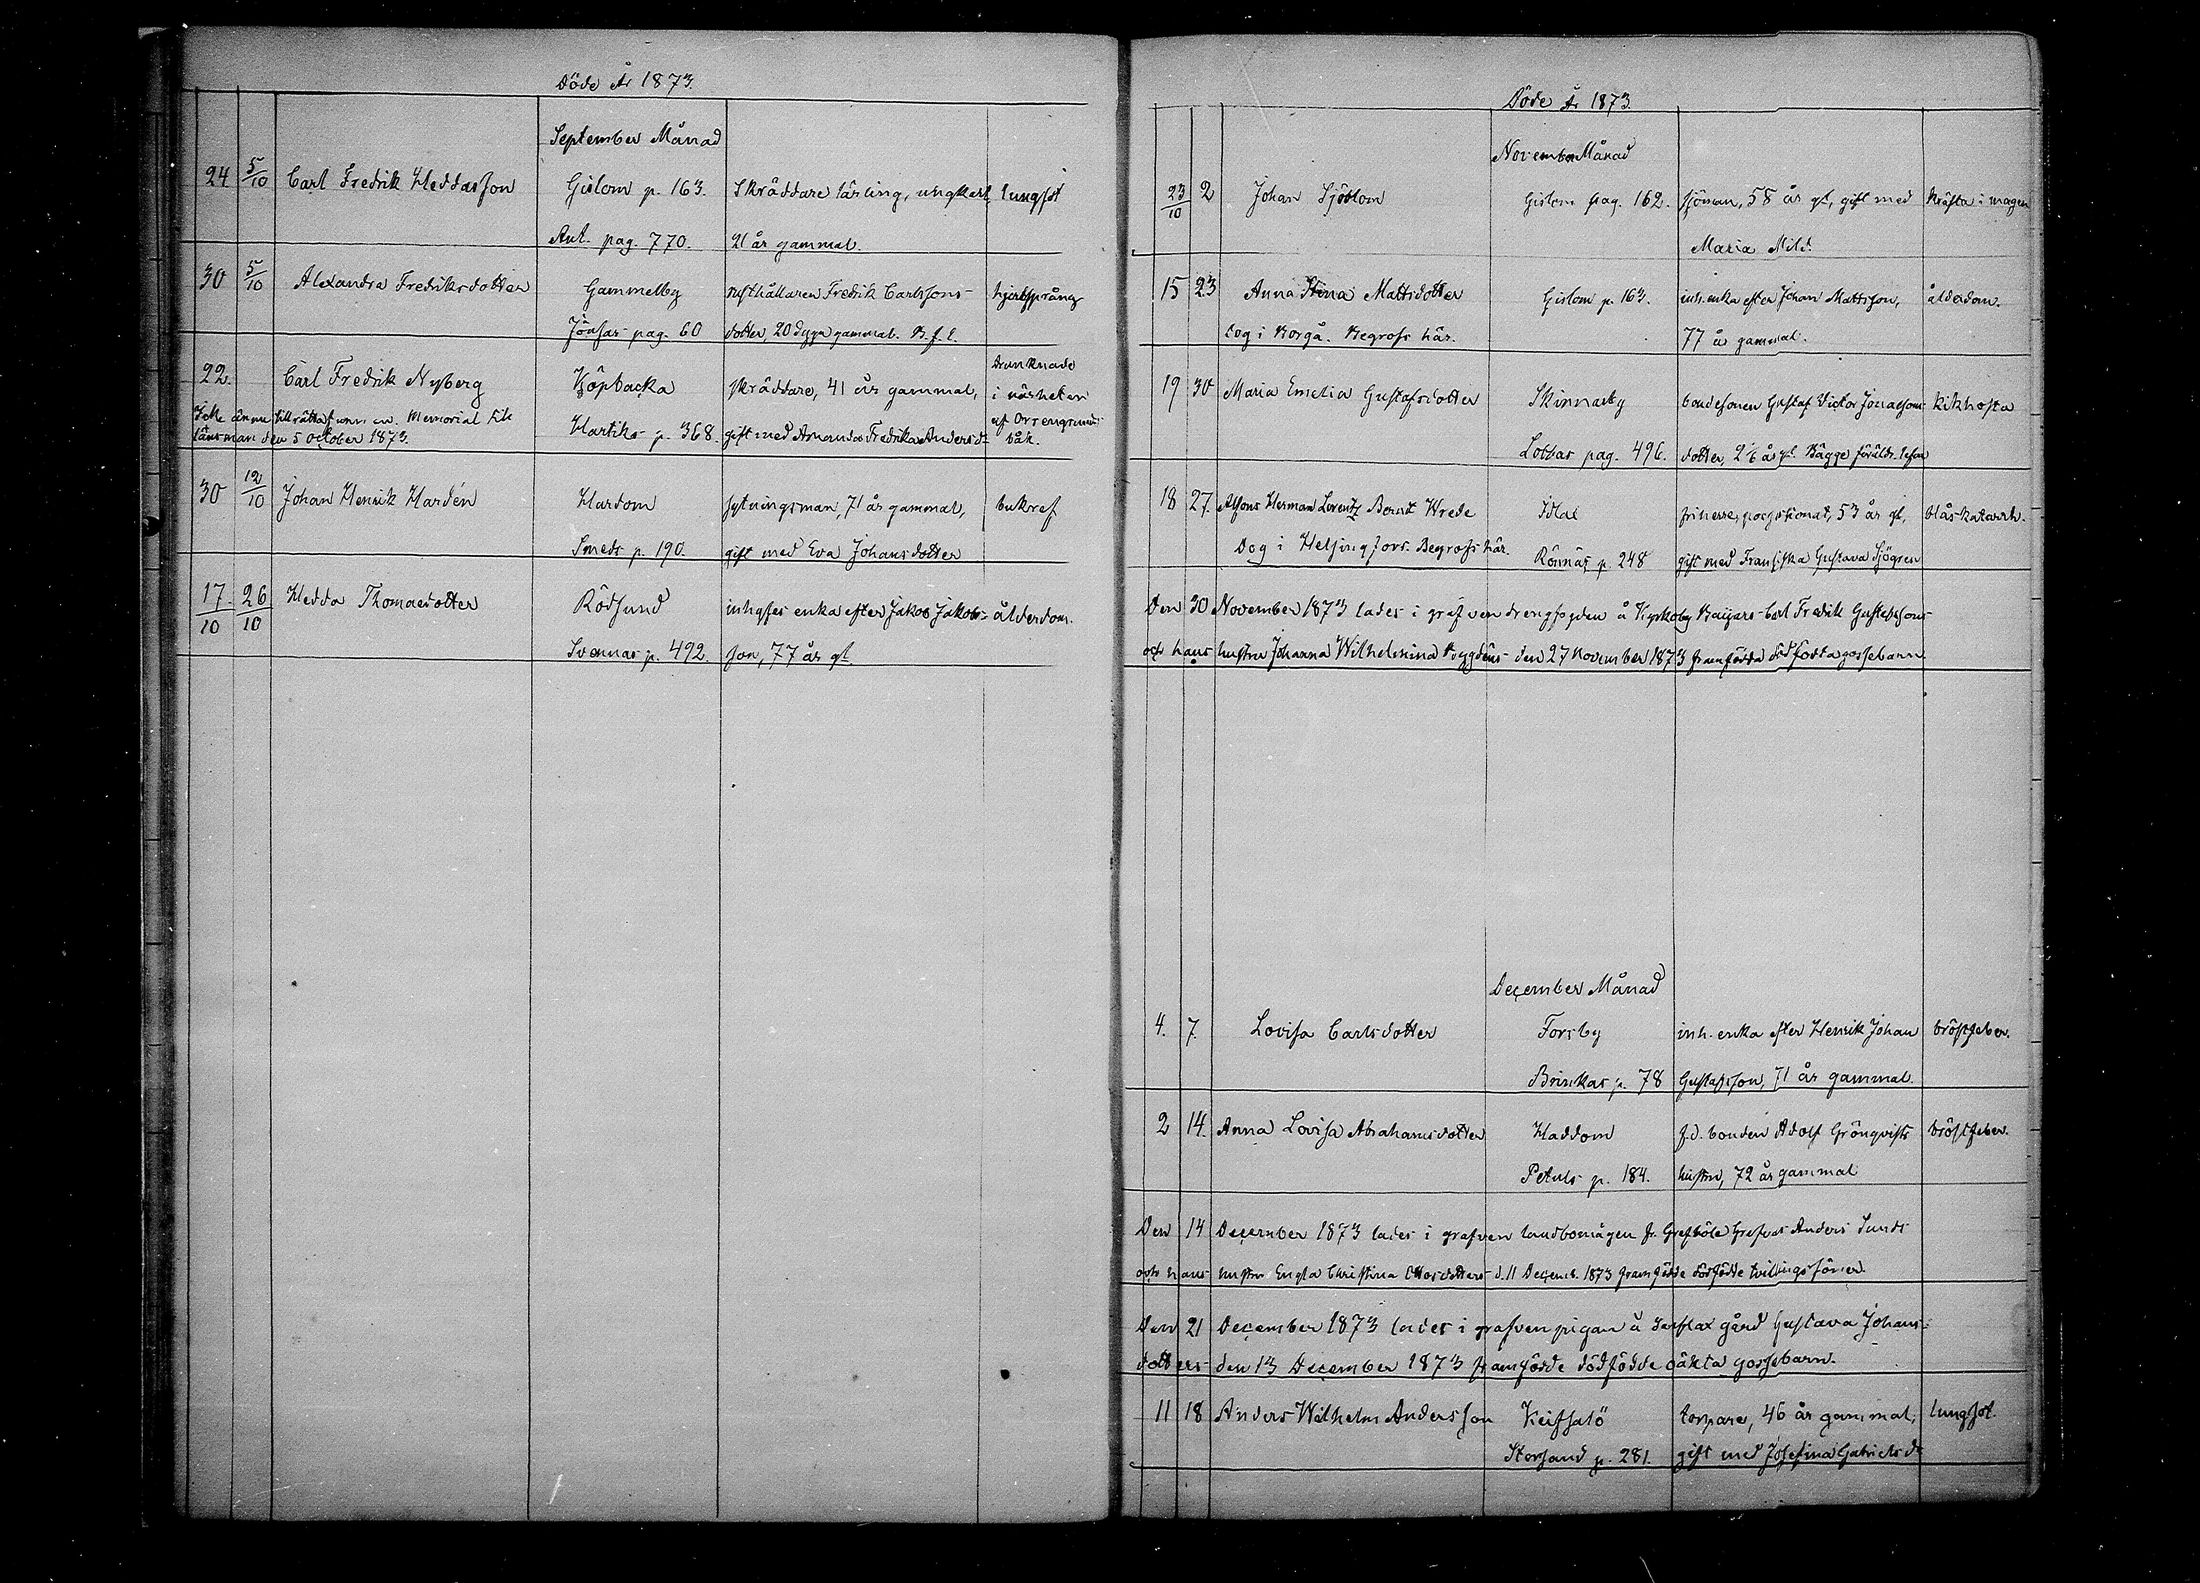 Döde År 1873.
September Månad
24 5/10 Carl Fredrik Heddasson Gislom p. 163. Skräddare lärling, ungkarl, lungsot
Ant. pag. 770. 21 år gammal.
30 5/10 Alexandra Fredriksdotter Gammelby rusthållaren Fredrik Carlssons hjertsprång
Jönsas pag. 60 dotter, 20 dygn gammal. B. f. l.
22. Carl Fredrik Nyberg Köpbacka skräddare, 41 år gammal, drunknade i närheten
Icke ännu tillrätta funnen. Memorial till Hartiks p. 368. gift med Amanda Fredrika Andersdr af Orrengrunds
länsman den 5 october 1873. båk.
30 12/10 Johan Henrik Hardén Hardom sytningsman, 71 år gammal, bukref
Smeds p. 190. gift med Eva Johansdotter
17/10 26/10 Hedda Thomasdotter Rödsund inhyses enka efter Jakob Jakobs- ålderdom.
Svennas p. 492. son, 77 år gl.
Döde År 1873.
November Månad
23/10 2 Johan Sjöblom Gislom pag. 162. sjöman, 58 år gl, gift med kräfta i magen
Maria Mild.
15 23 Anna Stina Mattsdotter Gislom p. 163. inh. enka efter Johan Mattsson, ålderdom.
Dog i Borgå. Begrofs här. 77 år gammal.
19 30 Maria Emelia Gustafsdotter Skinnarby bondesonen Gustaf Victor Jonassons kikhosta
Lobbas pag. 496. dotter, 2 1/6 år gl. Bägge föräldr. lefva
18 27. Alfons Herman Lorentz Berndt Wrede Idlal friherre, possessionat, 53 år gl, blåskatarrh.
Dog i Helsingfors. Begrofs här. Rönnäs p. 248 gift med Fransiska Gustava Sjögren
Den 30 November 1873 lades i grafven drengfogden å Kyrkoby Baijars Carl Fredrik Gustafssons
och hans hustru Johanna Wilhelmina Bygdéns den 27 november 1873 framfödda dödfödda gossebarn
December Månad
4. 7. Lovisa Carlsdotter Forsby inh. enka efter Henrik Johan bröstfeber.
Brinkas p. 78 Gustafsson, 71 år gammal.
2 14. Anna Lovisa Abrahamsdotter Haddom f.d. bonden Adolf Grönqvists bröstfeber.
Petals p. 184. hustru, 72 år gammal
Den 14 December 1873 lades i grafven landbomågen fr. Grefböle Grefvas Anders Sunds
och hans hustru Engla Christina Ottosdotters d. 11 Decemb. 1873 framfödde dödfödde tvillingssöner.
Den 21 December 1873 lades i grafven pigan å Sarflax gård Gustava Johans-
dotters den 13 December 1873 framfödde dödfödde oäkta gossebarn.
11 18 Anders Wilhelm Andersson Keitsalö torpare, 46 år gammal, lungsot.
Storsand p. 281. gift med Josefina Gabrielsdr